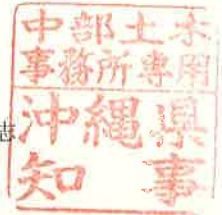 中部土木
事務所専用
志
沖縄県
知事